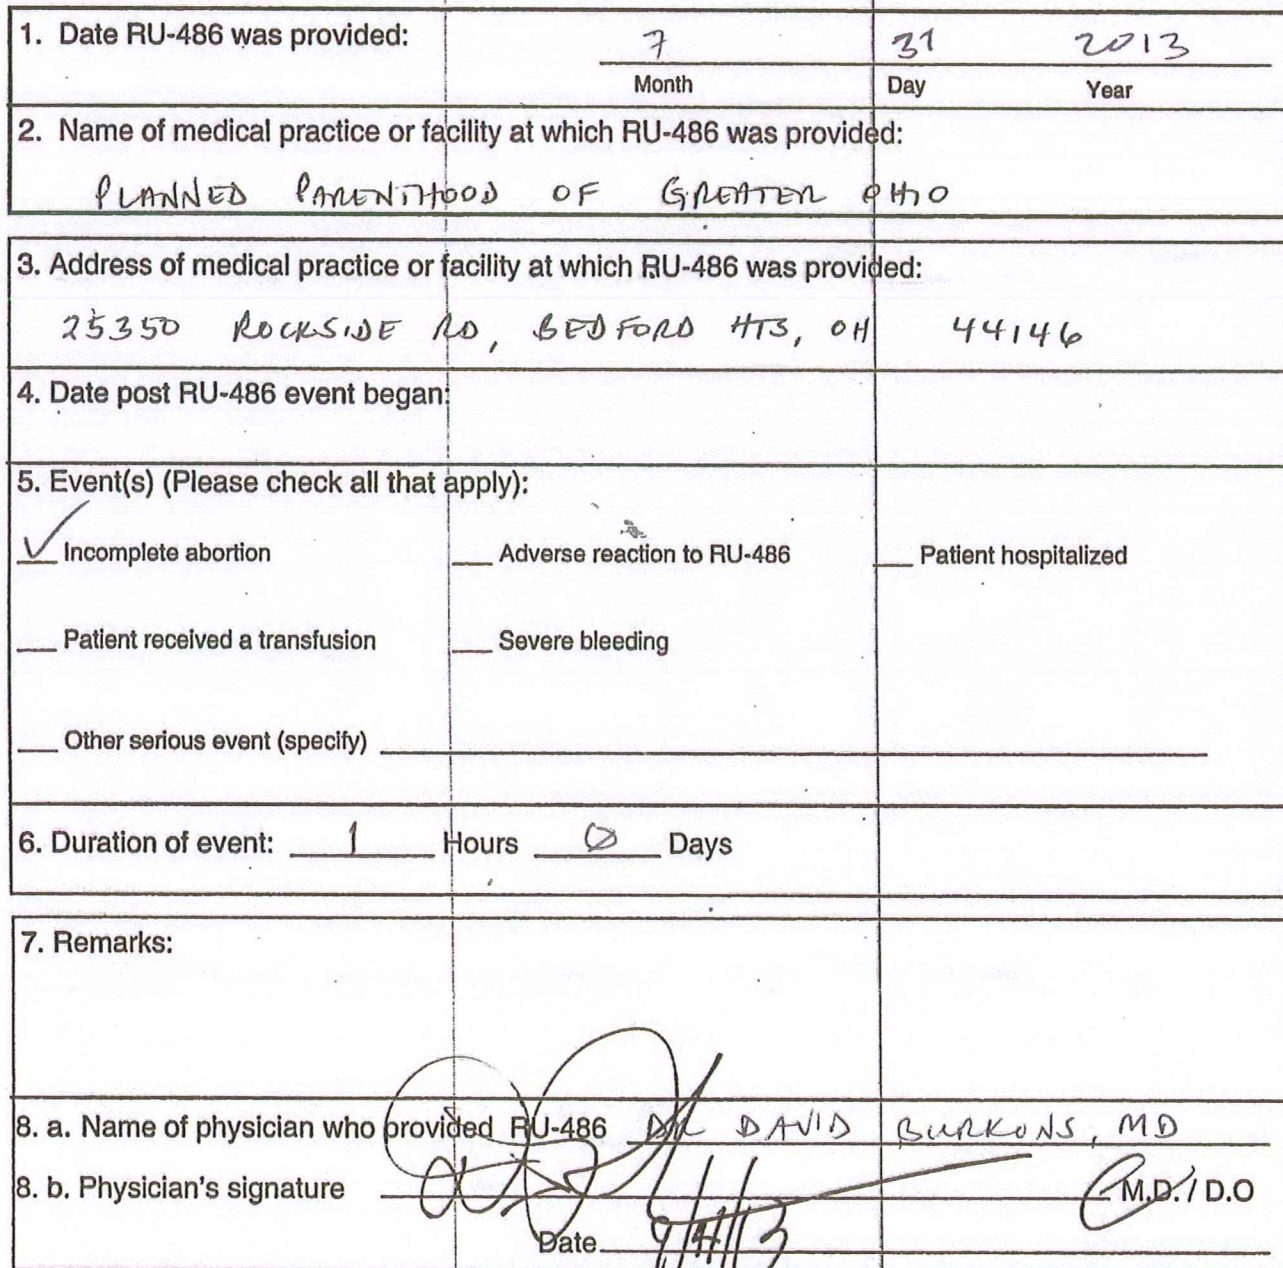 1. Date RU-486 was provided: 7 31 2013
Month Day Year
2. Name of medical practice or facility at which RU-486 was provided:
PLANNED PARENTHOOD OF GREATER OHIO
3. Address of medical practice or facility at which RU-486 was provided:
25350 ROCKSIDE RD, BEDFORD HTS, OH 44146
4. Date post RU-486 event began:
5. Event(s) (Please check all that apply):
✓ Incomplete abortion __ Adverse reaction to RU-486 __ Patient hospitalized
__ Patient received a transfusion __ Severe bleeding
__ Other serious event (specify)
6. Duration of event: 1 Hours 0 Days
7. Remarks:
8. a. Name of physician who provided RU-486 DR DAVID BURKONS, MD
8. b. Physician's signature M.D. / D.O
Date